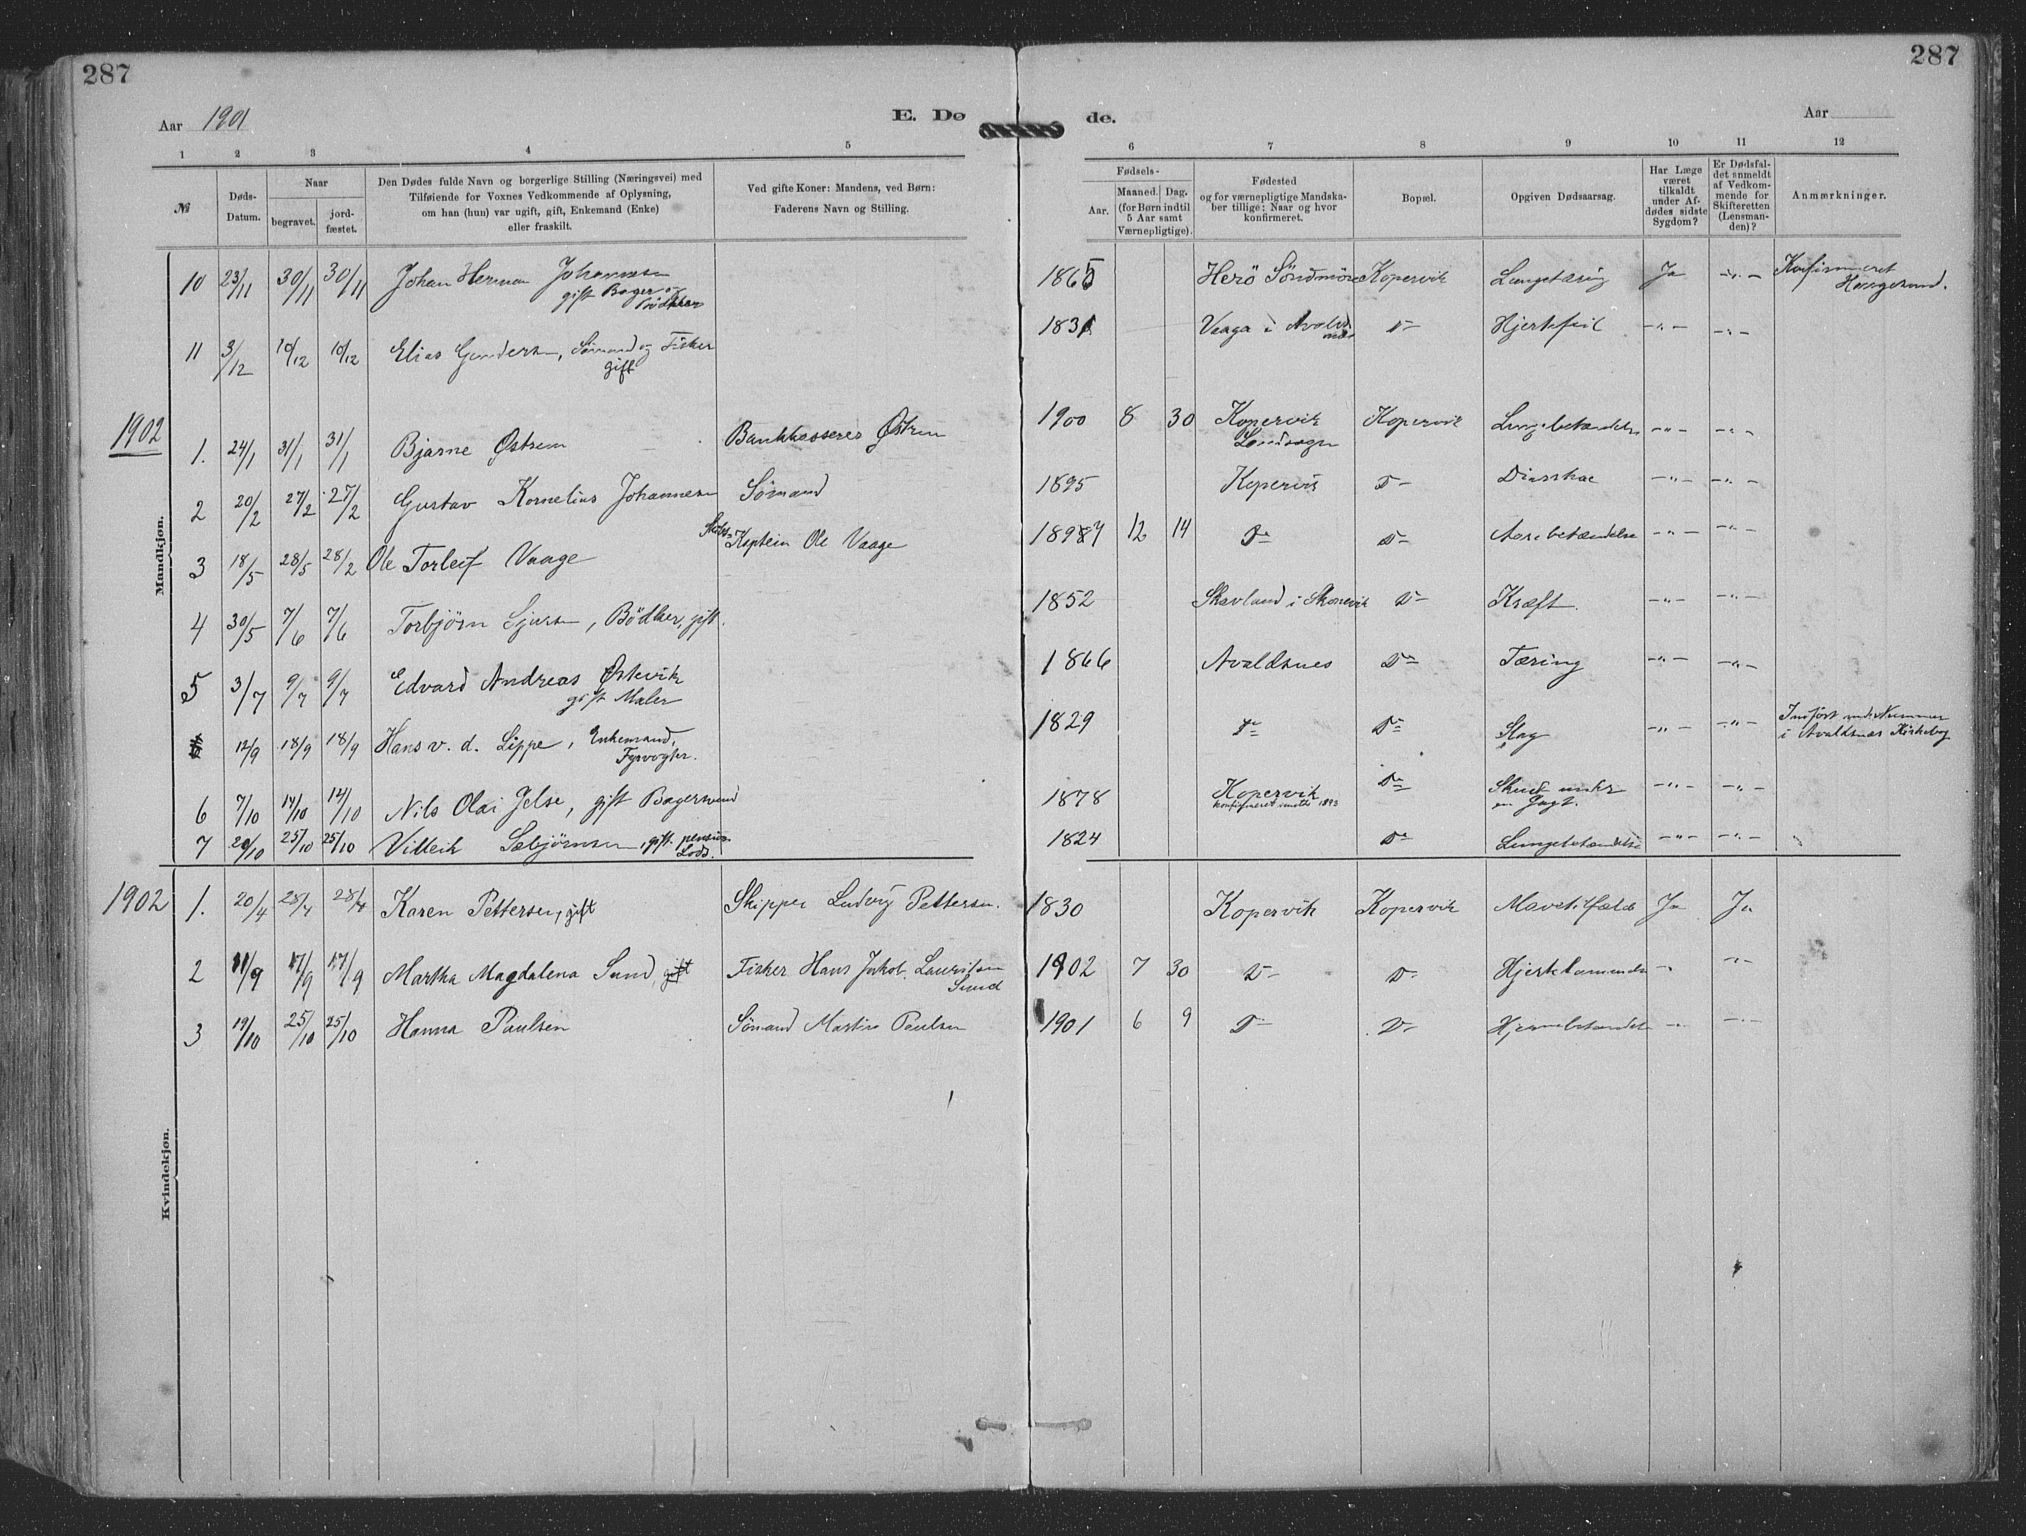 287
287
Aar 1901
E. Dø
de.
Aar
1 2 3 4 5 6 7 8 9 10 11 12
№
Døds-Datum.
Naar
begravet.
jordfæstet.
Den Dødes fulde Navn og borgerlige Stilling (Næringsvei) med
Tilføiende for Voxnes Vedkommende af Oplysning,
om han (hun) var ugift, gift, Enkemand (Enke)
eller fraskilt.
Ved gifte Koner: Mandens, ved Børn:
Faderens Navn og Stilling.
Fødsels-
Aar.
Maaned. Dag.
(for Børn indtil
5 Aar samt
Værnepligtige).
Fødested
og for værnepligtige Mandska-
ber tillige: Naar og hvor
konfirmeret.
Bopæl.
Opgiven Dødsaarsag.
Har Læge
været
tilkaldt
under Af-
dødes sidste
Sygdom?
Er Dødsfal-
det anmeldt
af Vedkom-
mende for
Skifteretten
(Lensman-
den)?
Anmærkninger.
10 23/11 30/11 30/11 Johan Herman Johannesen 1865 Herö Söndmör Kopervik Lungetæring Ja -"- Konfirmeret
gift Bager og Bödker
Haugesund.
11 3/12 10/12 10/12 Elias Gundersen, Sømand og Fisker 1831 Vaaga i Avaldsnes D- Hjertefeil -"- -"-
gift
1902
1. 24/1 31/1 31/1 Bjarne Østrem Bankkasserer Østrem 1900 8 30 Kopervik Landsogn Kopervik Lungebetændelse -"- -"-
2 20/2 27/2 27/2 Gustav Kornelius Johannesen Sømand 1895 Kopervik D- -"- -"-
3 18/5 28/5 28/2 Ole Torleif Vaage Kaptein Ole Vaage 12 14 Do D- -"- -"-
4 30/5 7/6 7/6 Torbjørn Sjursen, Bödker, gift. 1852 Skavland i Skonevik D- Kræft. -"- -"-
5 3/7 9/7 9/7 Edvard Andreas Østevik 1866 Avaldsnes Do Tæring -"- -"-
gift Maler
12/9 18/9 18/9 Hans v. d. Lippe, Enkemand, Fyrvogter. 1829 Do Do Slag -"- -"- Indført under Nummer
i Avaldsnæs Kirkebog
6 7/10 14/10 14/10 Nils Olai Jelse, gift Bagersvend 1878 Kopervik Do Skud under en Jagt. -"- -"-
konfirmeret 1893
7 20/10 25/10 25/10 Villeik Sæbjørnsen, gift. pension. Lods. 1824 Do Lungebetændelse -"- -"-
Mandkjøn.
1902
1. 20/4 28/4 28/4 Karen Pettersen, gift Skipper Ludvig Pettersen. 1830 Kopervik Kopervik Mavetilfælde Ja Ja
2 11/9 17/9 17/9 Martha Magdalena Sund, gift Fisker Hans Jakob Lauritsen Sund 1902 7 30 D- D- -"- -"-
3 19/10 25/10 25/10 Hanna Paulsen Sømand Martin Paulsen 1901 6 9 D- D- Hjernebetændelse -"- -"-
Kvindekjøn.